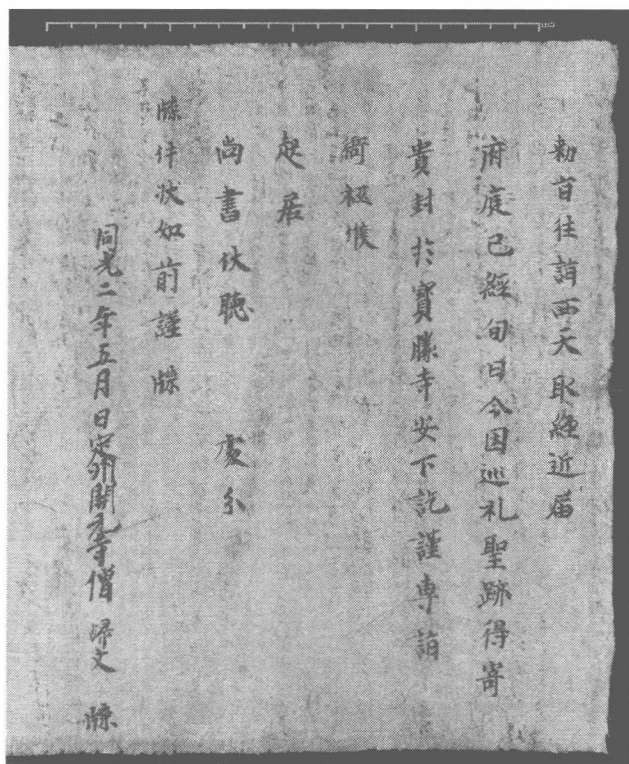 勑旨往詣西天取經近届
府庭已經旬日今因巡礼聖跡得寄
貴封於寳勝寺安下訖謹專詣
衙祗候
起居
尚書伏聴　處分
牒件状如前謹牒
同光二年五月日定州開元寺僧歸文　牒